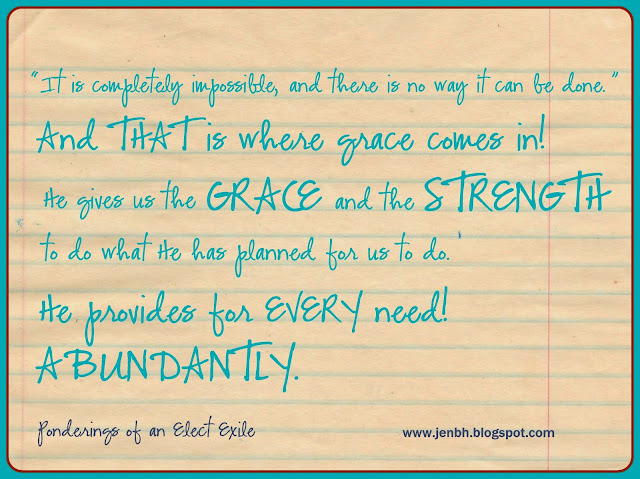 "It is completely impossible, and there is no way it can be done."
And THAT is where grace comes in!
He gives us the GRACE and the STRENGTH
to do what He has planned for us to do.
He provides for EVERY need!
ABUNDANTLY.
Ponderings of an Elect Exile www.jenbh.blogspot.com